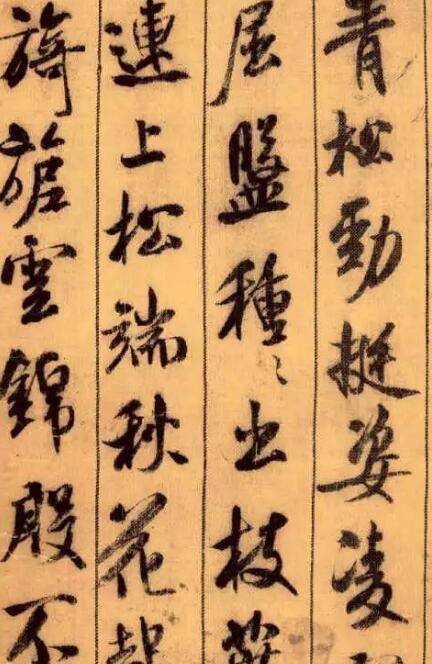 青松勁挺姿凌
屈盤種〻出枝
連上松端秋花
旖旎雲錦殷不